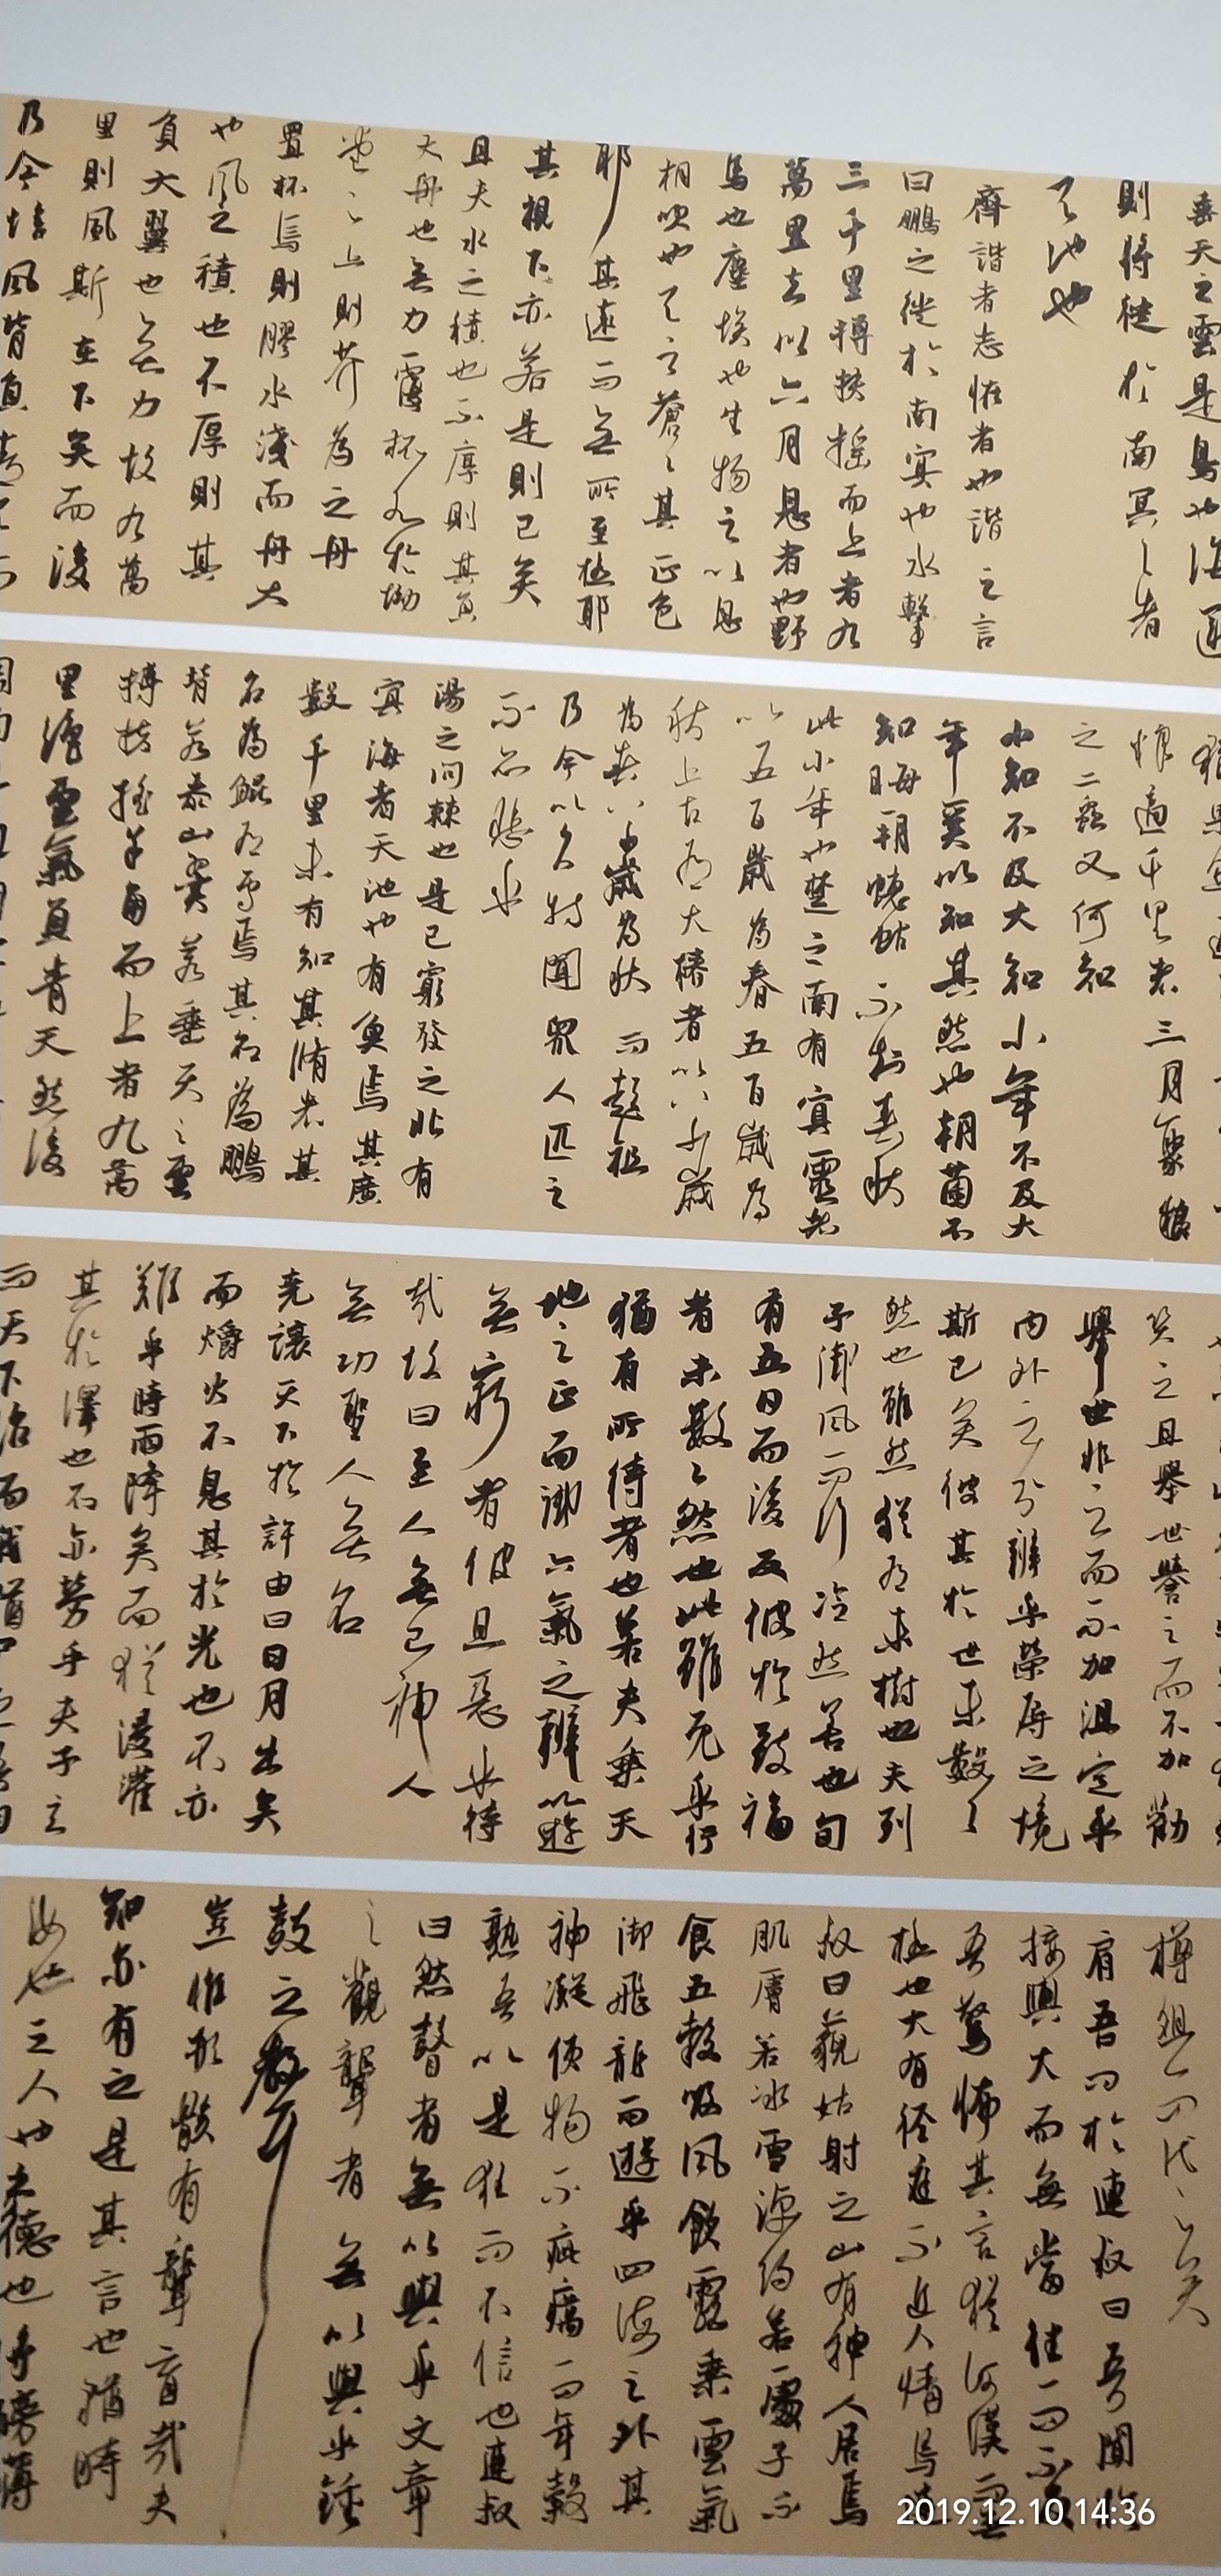 垂天之雲是鳥也海運
則將徙於南冥〻者
天池也
齊諧者志怪者也諧之言
曰鵬之徙於南冥也水擊
三千里摶扶搖而上者九
萬里去以六月息者也野
馬也塵埃也生物之以息
相吹也天之蒼〻其正色
耶其遠而無所至極耶
其視下亦若是則已矣
且夫水之積也不厚則其負
大舟也無力覆杯水於坳
堂之上則芥為之舟
置杯焉則膠水淺而舟大
也風之積也不厚則其
負大翼也無力故九萬
里則風斯在下矣而後
乃今培風背負青天而
糧適千里者三月聚糧
之二蟲又何知
小知不及大知小年不及大
年奚以知其然也朝菌不
知晦朔蟪蛄不知春秋
此小年也楚之南有冥靈者
以五百歲為春五百歲為
秋上古有大椿者以八千歲
為春八千歲為秋而彭祖
乃今以久特聞眾人匹之
不亦悲乎
湯之問棘也是已窮發之北有
冥海者天池也有魚焉其廣
數千里未有知其脩者其
名為鯤有鳥焉其名為鵬
背若泰山翼若垂天之雲
摶扶搖羊角而上者九萬
里絕雲氣負青天然後
笑之且舉世譽之而不加勸
舉世非之而不加沮定乎
內外之分辨乎榮辱之境
斯已矣彼其於世未數〻
然也雖然猶有未樹也夫列
子御風而行泠然善也旬
有五日而後反彼於致福
者未數〻然也此雖免乎行
猶有所待者也若夫乘天
地之正而御六氣之辯以遊
無窮者彼且惡乎待
哉故曰至人無己神人
無功聖人無名
堯讓天下於許由曰日月出矣
而爝火不息其於光也不亦
難乎時雨降矣而猶浸灌
其於澤也不亦勞乎夫子立
而天下治而我猶尸之吾自
樽俎而代之矣
肩吾問於連叔曰吾聞於
接輿大而無當往而不反
吾驚怖其言猶河漢而無
極也大有徑庭不近人情焉連
叔曰藐姑射之山有神人居焉
肌膚若冰雪淖約若處子不
食五穀吸風飲露乘雲氣
御飛龍而遊乎四海之外其
神凝使物不疵癘而年穀
熟吾以是狂而不信也連叔
曰然瞽者無以與乎文章
之觀聾者無以與乎鍾
鼓之聲
豈惟形骸有聾盲哉夫
知亦有之是其言也猶時
汝也之人也之德也將磅礴
2019.12.10 14:36